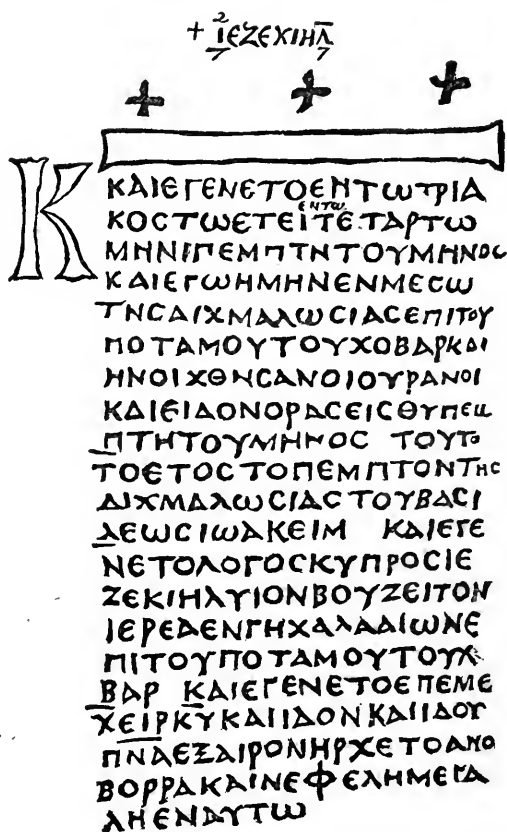 + ΙΕΖΕΚΙΗΛ
Κ
ΚΑΙΕΓΕΝΕΤΟΕΝΤΩΤΡΙΑ
ΕΝΤΩ
ΚΟϹΤΩΕΤΕΙΤΕΤΑΡΤΩ
ΜΗΝΙΠΕΜΠΤΗΤΟΥΜΗΝΟϹ
ΚΑΙΕΓΩΗΜΗΝΕΝΜΕϹΩ
ΤΗϹΑΙΧΜΑΛΩϹΙΑϹΕΠΙΤΟΥ
ΠΟΤΑΜΟΥΤΟΥΧΟΒΑΡΚΑΙ
ΗΝΟΙΧΘΗϹΑΝΟΙΟΥΡΑΝΟΙ
ΚΑΙΕΙΔΟΝΟΡΑϹΕΙϹΘΥΠΕΜ
ΠΤΗΤΟΥΜΗΝΟϹ ΤΟΥΤΟ
ΤΟΕΤΟϹΤΟΠΕΜΠΤΟΝΤΗϹ
ΑΙΧΜΑΛΩϹΙΑϹΤΟΥΒΑϹΙ
ΛΕΩϹΙΩΑΚΕΙΜ ΚΑΙΕΓΕ
ΝΕΤΟΛΟΓΟϹΚΥΠΡΟϹΙΕ
ΖΕΚΙΗΛΥΙΟΝΒΟΥΖΕΙΤΟΝ
ΙΕΡΕΑΕΝΓΗΧΑΛΔΑΙΩΝΕ
ΠΙΤΟΥΠΟΤΑΜΟΥΤΟΥΧ
ΒΑΡ ΚΑΙΕΓΕΝΕΤΟΕΠΕΜΕ
ΧΕΙΡΚΥΚΑΙΙΔΟΝΚΑΙΙΔΟΥ
ΠΝΑΕΞΑΙΡΟΝΗΡΧΕΤΟΑΠΟ
ΒΟΡΡΑΚΑΙΝΕΦΕΛΗΜΕΓΑ
ΛΗΕΝΑΥΤΩ